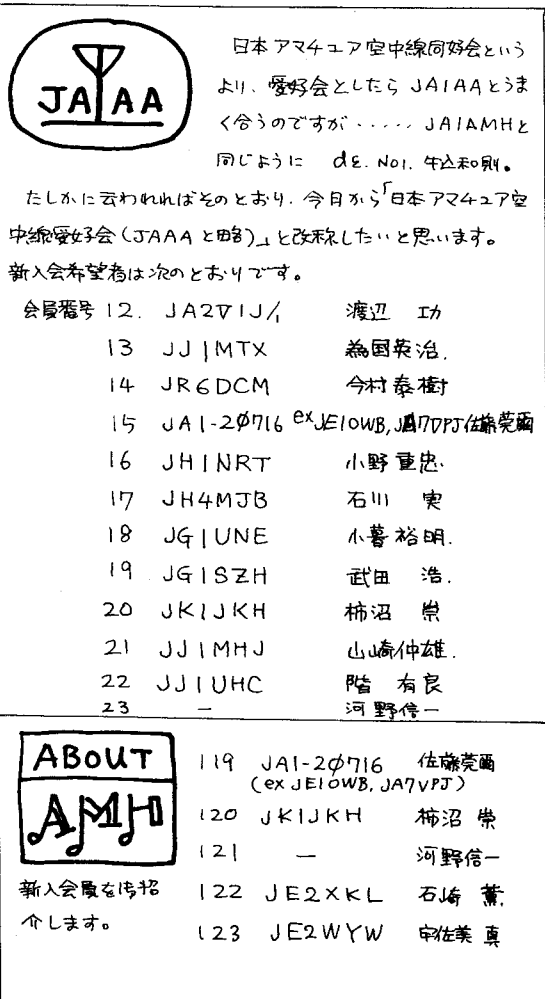 JAAA
日本アマチュア空中線同好会という
より、愛好会としたら JA1AAとうま
く合うのですが・・・・・ JA1AMHと
同じように de. No1. 牛込和則。
たしかに云われればそのとおり、今月から「日本アマチュア空
中線愛好会(JAAAと略)」と改称したいと思います。
新入会希望者は次のとおりです。
会員番号 12. JA2VIJ/1 渡辺 功
13 JJ1MTX 為国英治.
14 JR6DCM 今村泰樹
15 JA1-2Ø716 ex JE1OWB, JA7VPJ 佐藤莞爾
16 JH1NRT 小野重忠.
17 JH4MJB 石川 実
18 JG1UNE 小暮裕明.
19 JG1SZH 武田 浩.
20 JK1JKH 柿沼 崇
21 JJ1MHJ 山崎仲雄.
22 JJ1UHC 階 有良
23 — 河野信一
ABOUT
AMH
新入会員を御紹
介します。
119 JA1-2Ø716 佐藤莞爾
(ex JE1OWB, JA7VPJ)
120 JK1JKH 柿沼 崇
121 — 河野信一
122 JE2XKL 石崎 薫
123 JE2WYW 宇佐美 真